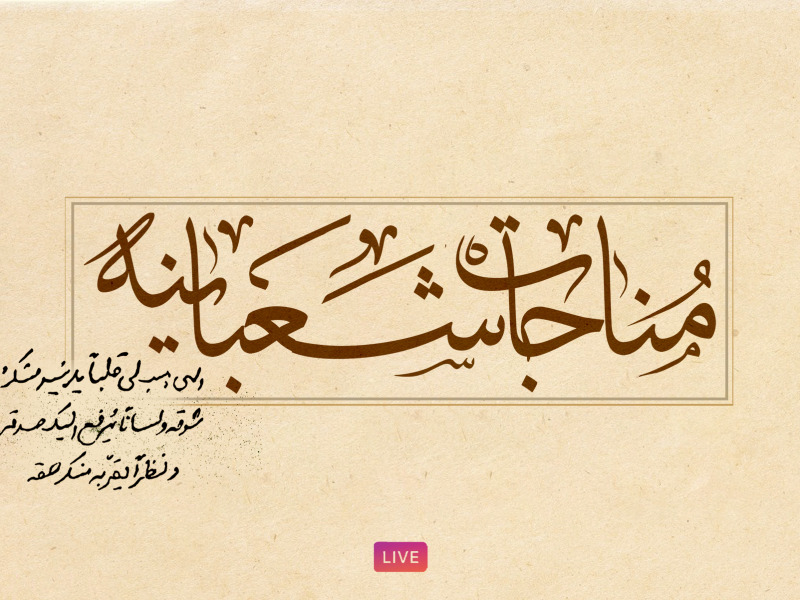 مُناجات شعبانیه
الهی هب لی قلباً یدنیه منک
شوقه و لساناً یُرفع الیک صدقه
و نظراً یقرّبه منک حقه
LIVE